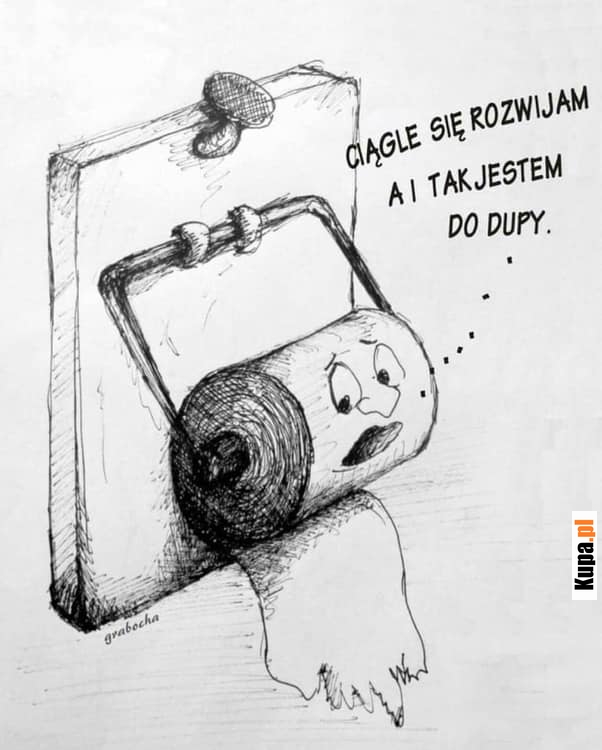 CIĄGLE SIĘ ROZWIJAM
A I TAK JESTEM
DO DUPY.
grabocha
Kupa.pl